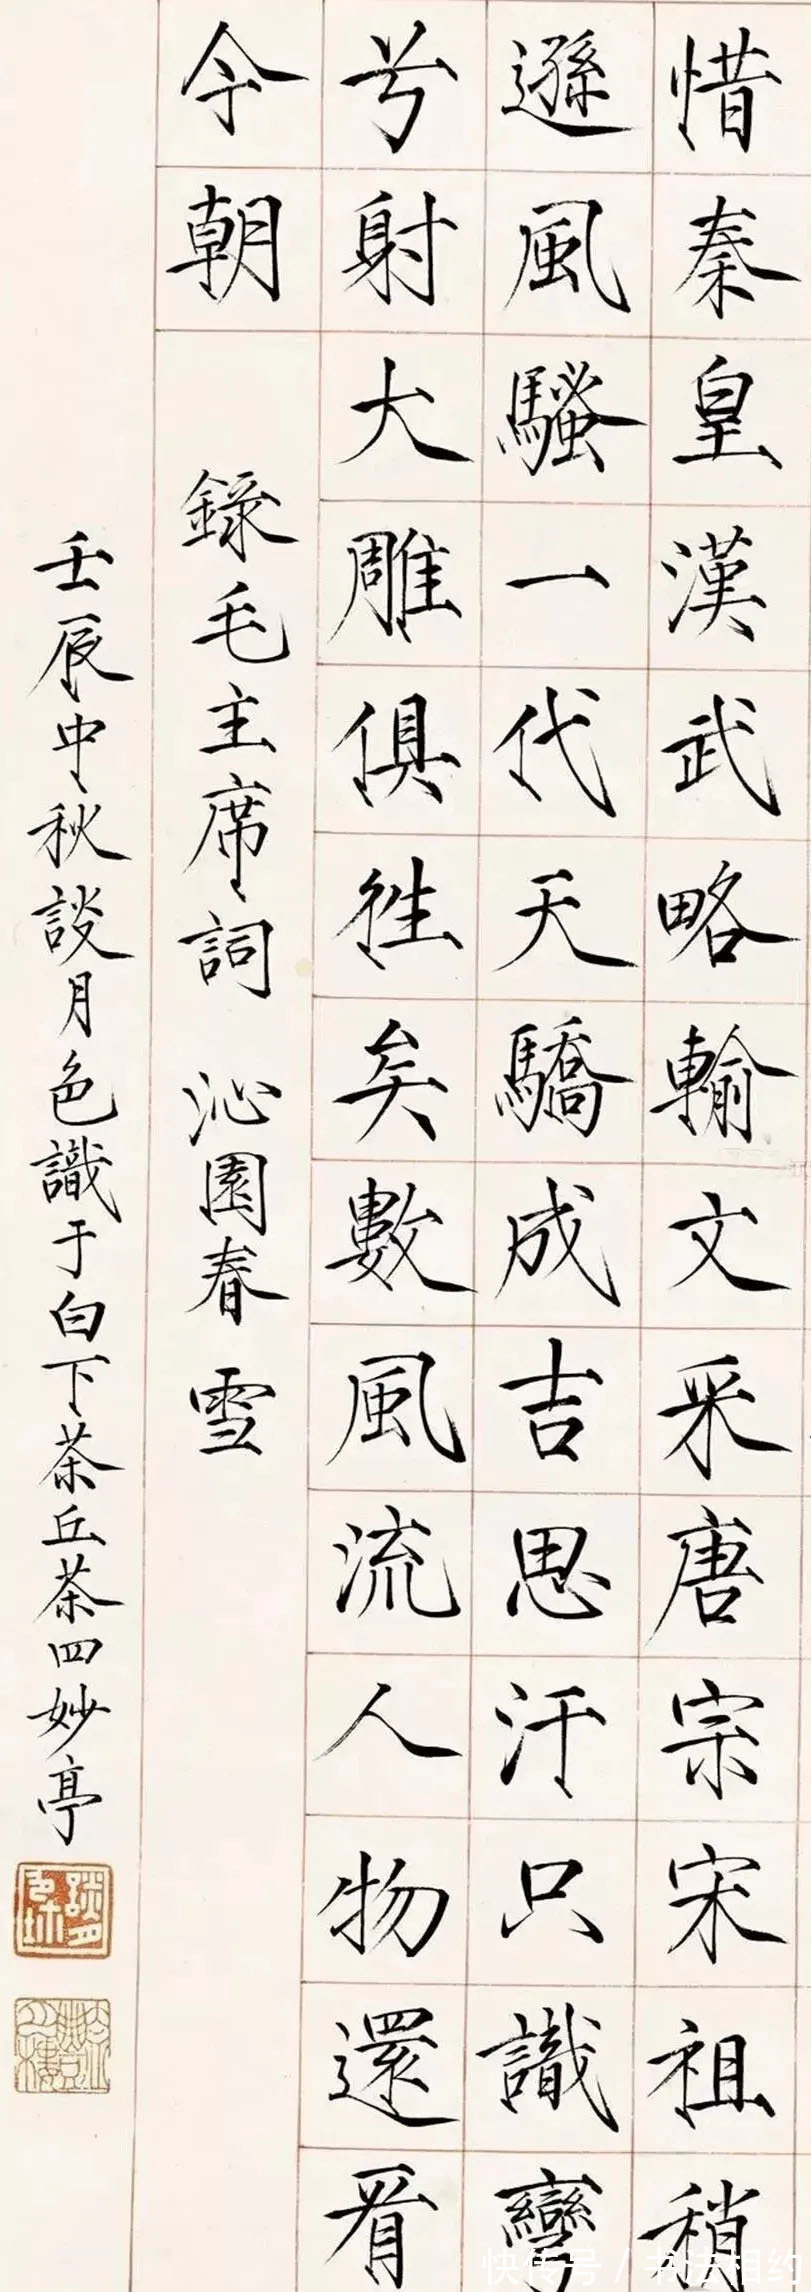 惜秦皇漢武略輸文采唐宗宋祖稍
遜風騷一代天驕成吉思汗只識彎
兮射大雕俱往矣數風流人物還看
今朝
錄毛主席詞 沁園春 雪
壬辰中秋談月色識于白下茶丘茶四妙亭
快传号 / 书法相约